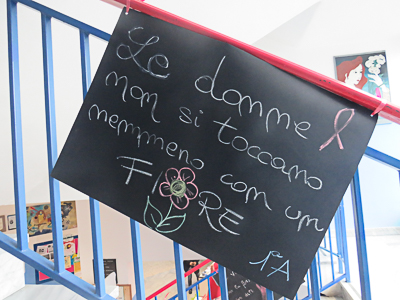 Le donne
non si toccano
nemmeno con un
FIORE
1A